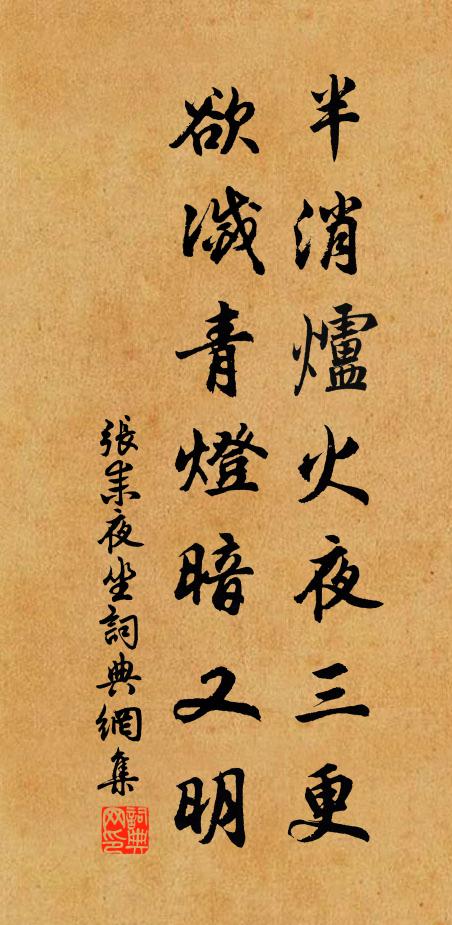 半消爐火夜三更
欲滅青燈暗又明
張耒夜坐詞典網集
詞典网印